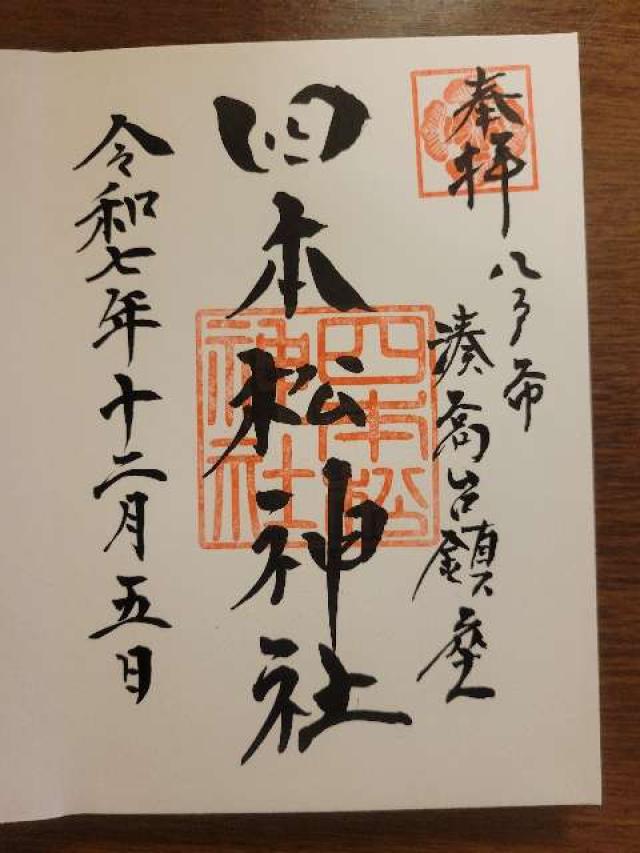 奉拝
八戸市
湊高台鎮座
四本松神社
四本松
神社
令和七年十二月五日